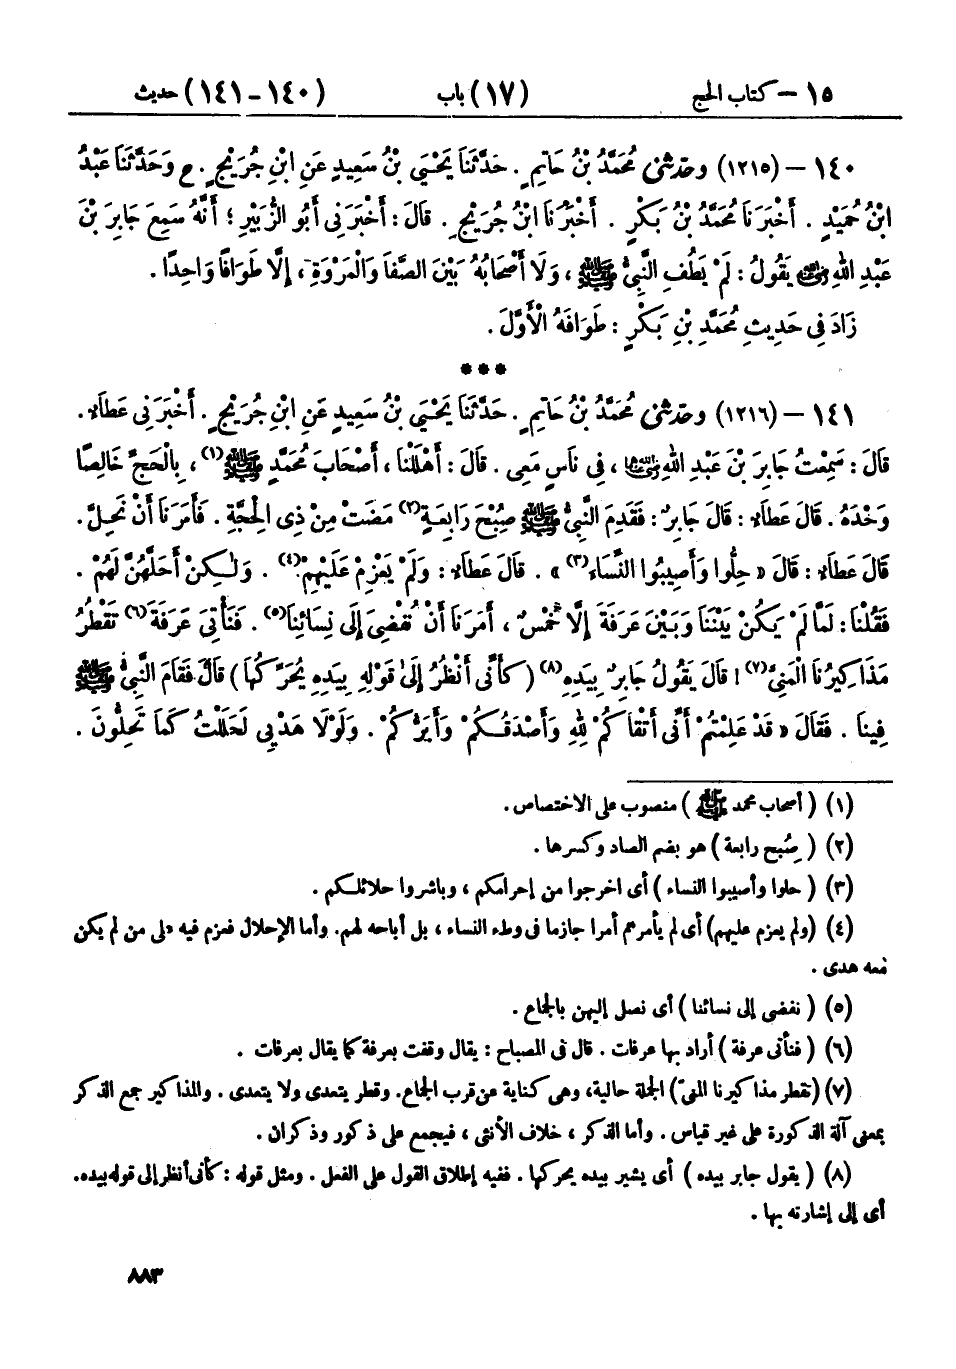 ١٥ – كتاب الحج (١٧) باب (١٤٠ – ١٤١) حديث
١٤٠ – (١٢١٥) وحَدَّثَنِي مُحَمَّدُ بْنُ حَاتِمٍ . حَدَّثَنَا يَحْيَى بْنُ سَعِيدٍ عَنِ ابْنِ جُرَيْجٍ . ح وَحَدَّثَنَا عَبْدُ
ابْنُ حُمَيْدٍ . أَخْبَرَنَا مُحَمَّدُ بْنُ بَكْرٍ . أَخْبَرَنَا ابْنُ جُرَيْجٍ . قَالَ : أَخْبَرَنِي أَبُو الزُّبَيْرِ ؛ أَنَّهُ سَمِعَ جَابِرَ بْنَ
عَبْدِ اللهِ رضي الله عنه يَقُولُ : لَمْ يَطُفِ النَّبِيُّ ﷺ ، وَلَا أَصْحَابُهُ بَيْنَ الصَّفَا وَالْمَرْوَةِ ، إِلَّا طَوَافًا وَاحِدًا .
زَادَ فِي حَدِيثِ مُحَمَّدِ بْنِ بَكْرٍ : طَوَافَهُ الْأَوَّلَ .
***
١٤١ – (١٢١٦) وحَدَّثَنِي مُحَمَّدُ بْنُ حَاتِمٍ . حَدَّثَنَا يَحْيَى بْنُ سَعِيدٍ عَنِ ابْنِ جُرَيْجٍ . أَخْبَرَنِي عَطَاءٌ .
قَالَ : سَمِعْتُ جَابِرَ بْنَ عَبْدِ اللهِ رضي الله عنهما ، فِي نَاسٍ مَعِي . قَالَ : أَهْلَلْنَا ، أَصْحَابَ مُحَمَّدٍ ﷺ(١) ، بِالْحَجِّ خَالِصًا
وَحْدَهُ . قَالَ عَطَاءٌ : قَالَ جَابِرٌ : فَقَدِمَ النَّبِيُّ ﷺ صُبْحَ رَابِعَةٍ(٢) مَضَتْ مِنْ ذِي الْحِجَّةِ . فَأَمَرَنَا أَنْ نَحِلَّ .
قَالَ عَطَاءٌ : قَالَ « حِلُّوا وَأَصِيبُوا النِّسَاءَ(٣) » . قَالَ عَطَاءٌ : وَلَمْ يَعْزِمْ عَلَيْهِمْ(٤) . وَلَـٰكِنْ أَحَلَّهُنَّ لَهُمْ .
فَقُلْنَا : لَمَّا لَمْ يَكُنْ بَيْنَنَا وَبَيْنَ عَرَفَةَ إِلَّا خَمْسٌ ، أَمَرَنَا أَنْ نُفْضِيَ إِلَى نِسَائِنَا(٥) . فَنَأْتِيَ عَرَفَةَ(٦) تَقْطُرُ
مَذَاكِيرُنَا الْمَنِيَّ(٧) ! قَالَ يَقُولُ جَابِرٌ بِيَدِهِ(٨) ( كَأَنِّي أَنْظُرُ إِلَىٰ قَوْلِهِ بِيَدِهِ يُحَرِّكُهَا ) قَالَ فَقَامَ النَّبِيُّ ﷺ
فِينَا . فَقَالَ « قَدْ عَلِمْتُمْ أَنِّي أَتْقَاكُمْ لِلهِ وَأَصْدَقُكُمْ وَأَبَرُّكُمْ . وَلَوْلَا هَدْيِي لَحَلَلْتُ كَمَا تَحِلُّونَ .
(١) ( أصحاب محمد ﷺ ) منصوب على الاختصاص .
(٢) ( صُبح رابعة ) هو بضم الصاد وكسرها .
(٣) ( حلوا وأصيبوا النساء ) أى اخرجوا من إحرامكم ، وباشروا حلائلكم .
(٤) (ولم يعزم عليهم) أى لم يأمرهم أمرا جازما فى وطء النساء ، بل أباحه لهم. وأما الإحلال فعزم فيه على من لم يكن
معه هدى .
(٥) ( نفضى إلى نسائنا ) أى نصل إليهن بالجماع .
(٦) ( فنأتى عرفة ) أراد بها عرفات . قال فى المصباح : يقال وقفت بعرفة كما يقال بعرفات .
(٧) (تقطر مذاكيرنا المنىّ) الجملة حالية، وهى كناية عن قرب الجماع. وقطر يتعدى ولا يتعدى . والمذاكير جمع الذكر
بمعنى آلة الذكورة على غير قياس . وأما الذكر ، خلاف الأنثى ، فيجمع على ذكور وذكران .
(٨) ( يقول جابر بيده ) أى يشير بيده يحركها . ففيه إطلاق القول على الفعل . ومثل قوله : كأنى أنظر إلى قوله بيده.
أى إلى إشارته بها .
٨٨٣